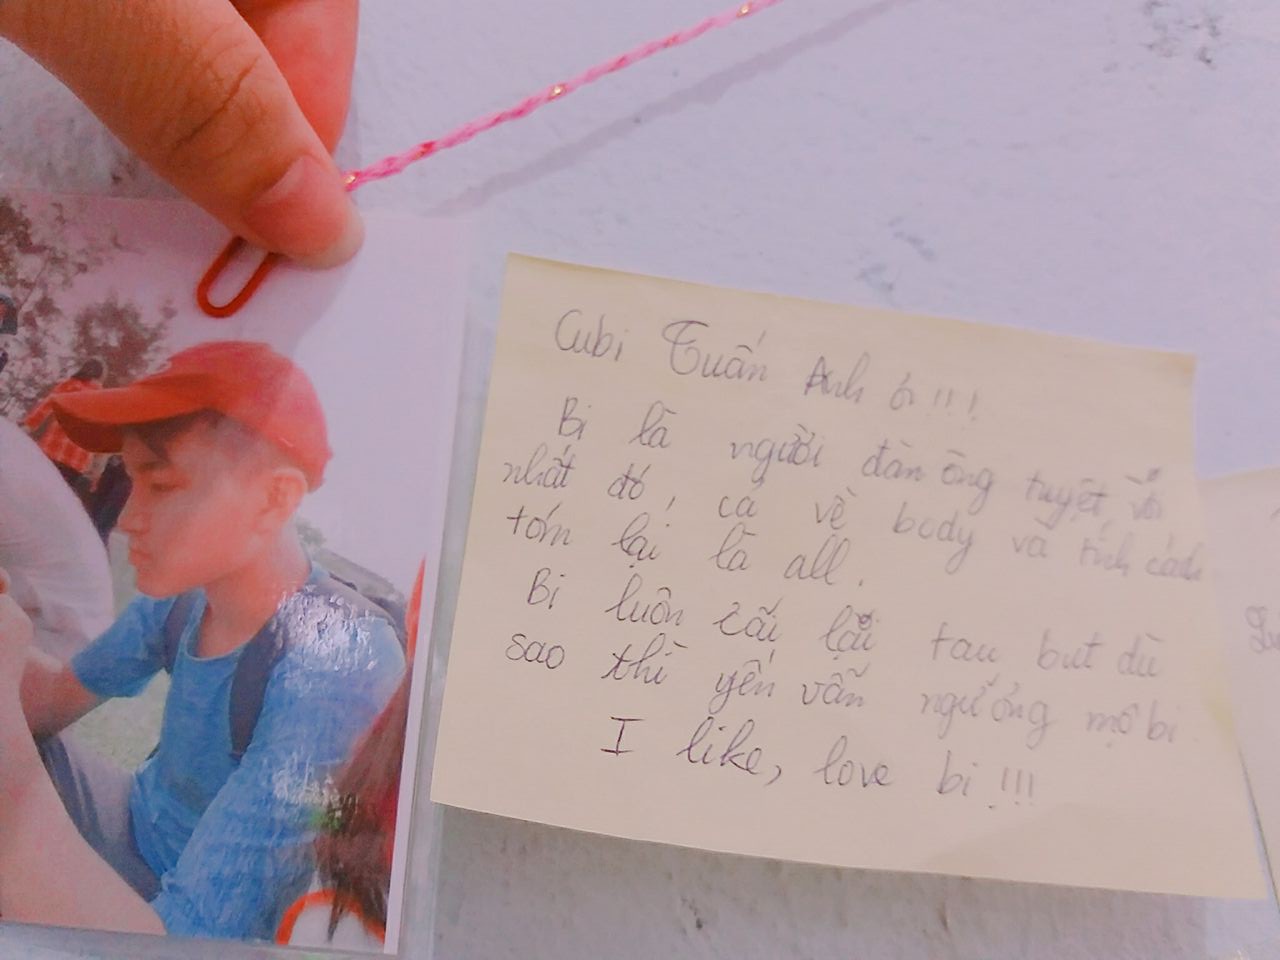 Cubi Tuấn Anh ơi!!!
Bi là người đàn ông tuyệt vời
nhất đó, cả về body và tính cách
tóm lại là all.
Bi luôn cãi lại tau but dù
sao thì yến vẫn ngưỡng mộ bi
I like, love bi!!!